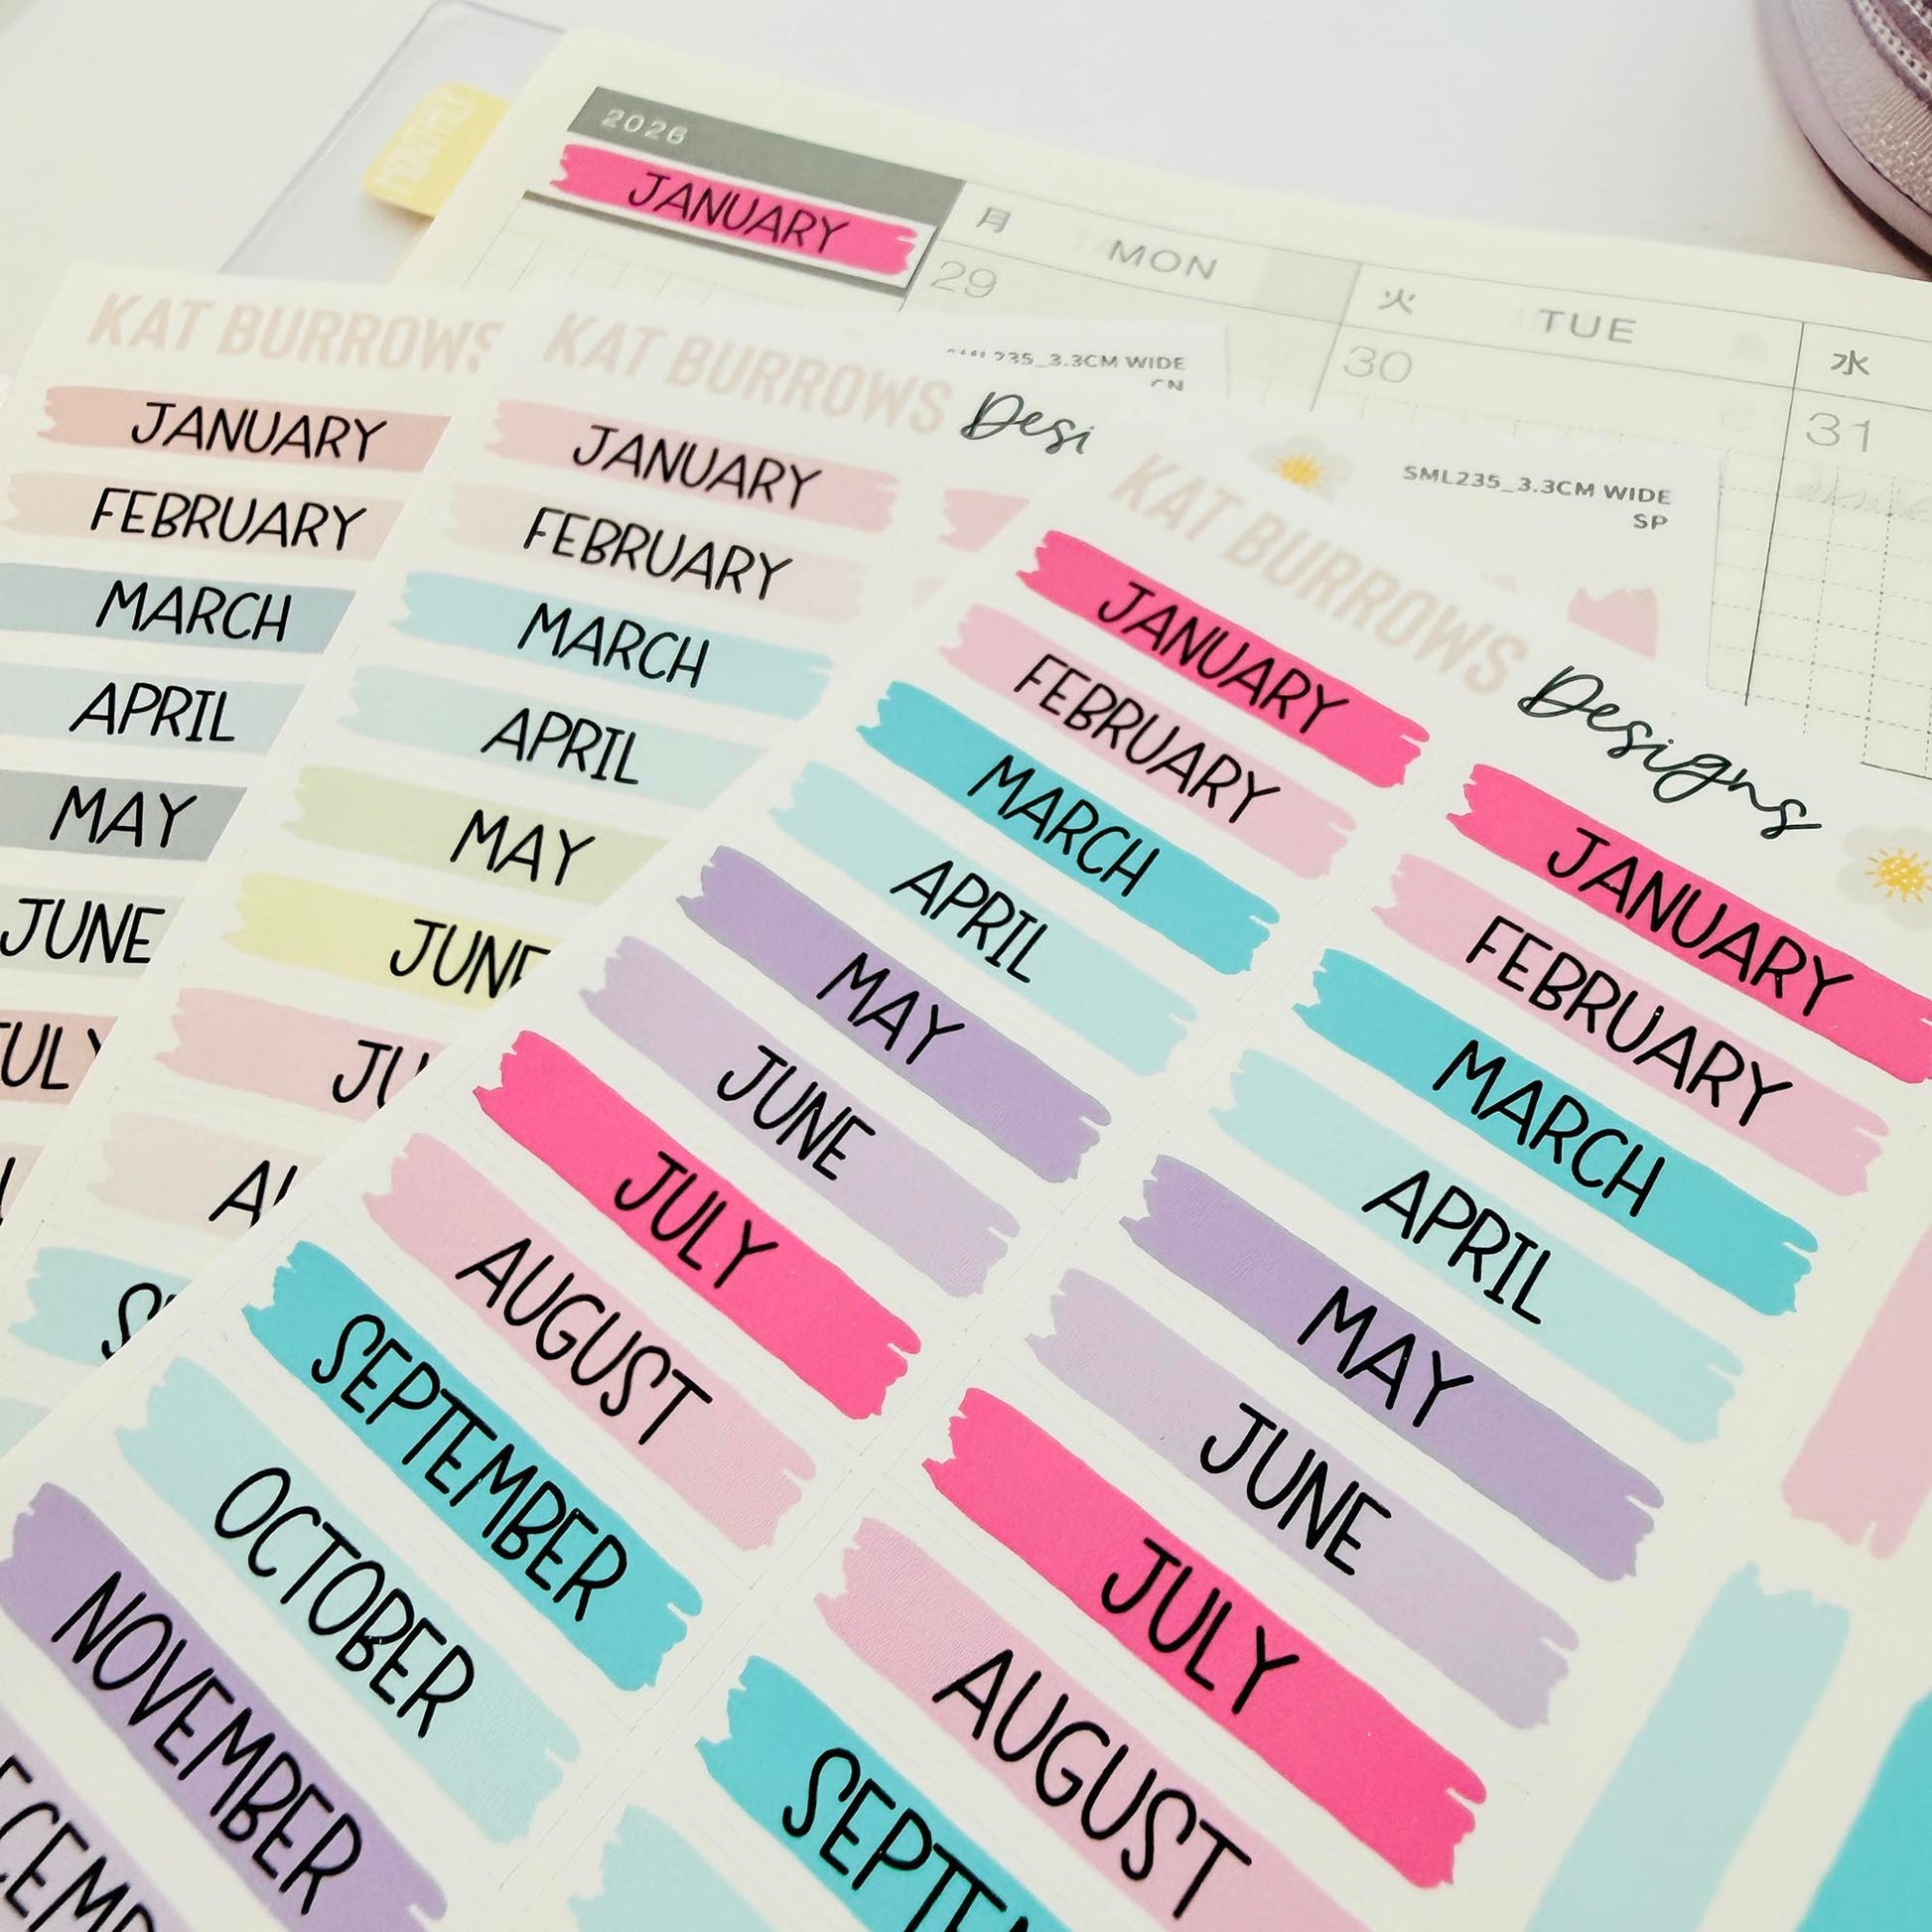 MONTHLY
2026
JANUARY
月 MON
29
火 TUE
30
水
31
KAT BURROWS
JANUARY
FEBRUARY
MARCH
APRIL
MAY
JUNE
JULY
KAT BURROWS
Desi
235_3.3CM WIDE
CN
JANUARY
FEBRUARY
MARCH
APRIL
MAY
JUNE
JU
AU
SE
KAT BURROWS
Designs
SML235_3.3CM WIDE
SP
JANUARY
FEBRUARY
MARCH
APRIL
MAY
JUNE
JULY
AUGUST
SEPTEMBER
OCTOBER
NOVEMBER
ECEMB
JANUARY
FEBRUARY
MARCH
APRIL
MAY
JUNE
JULY
AUGUST
SEPTE